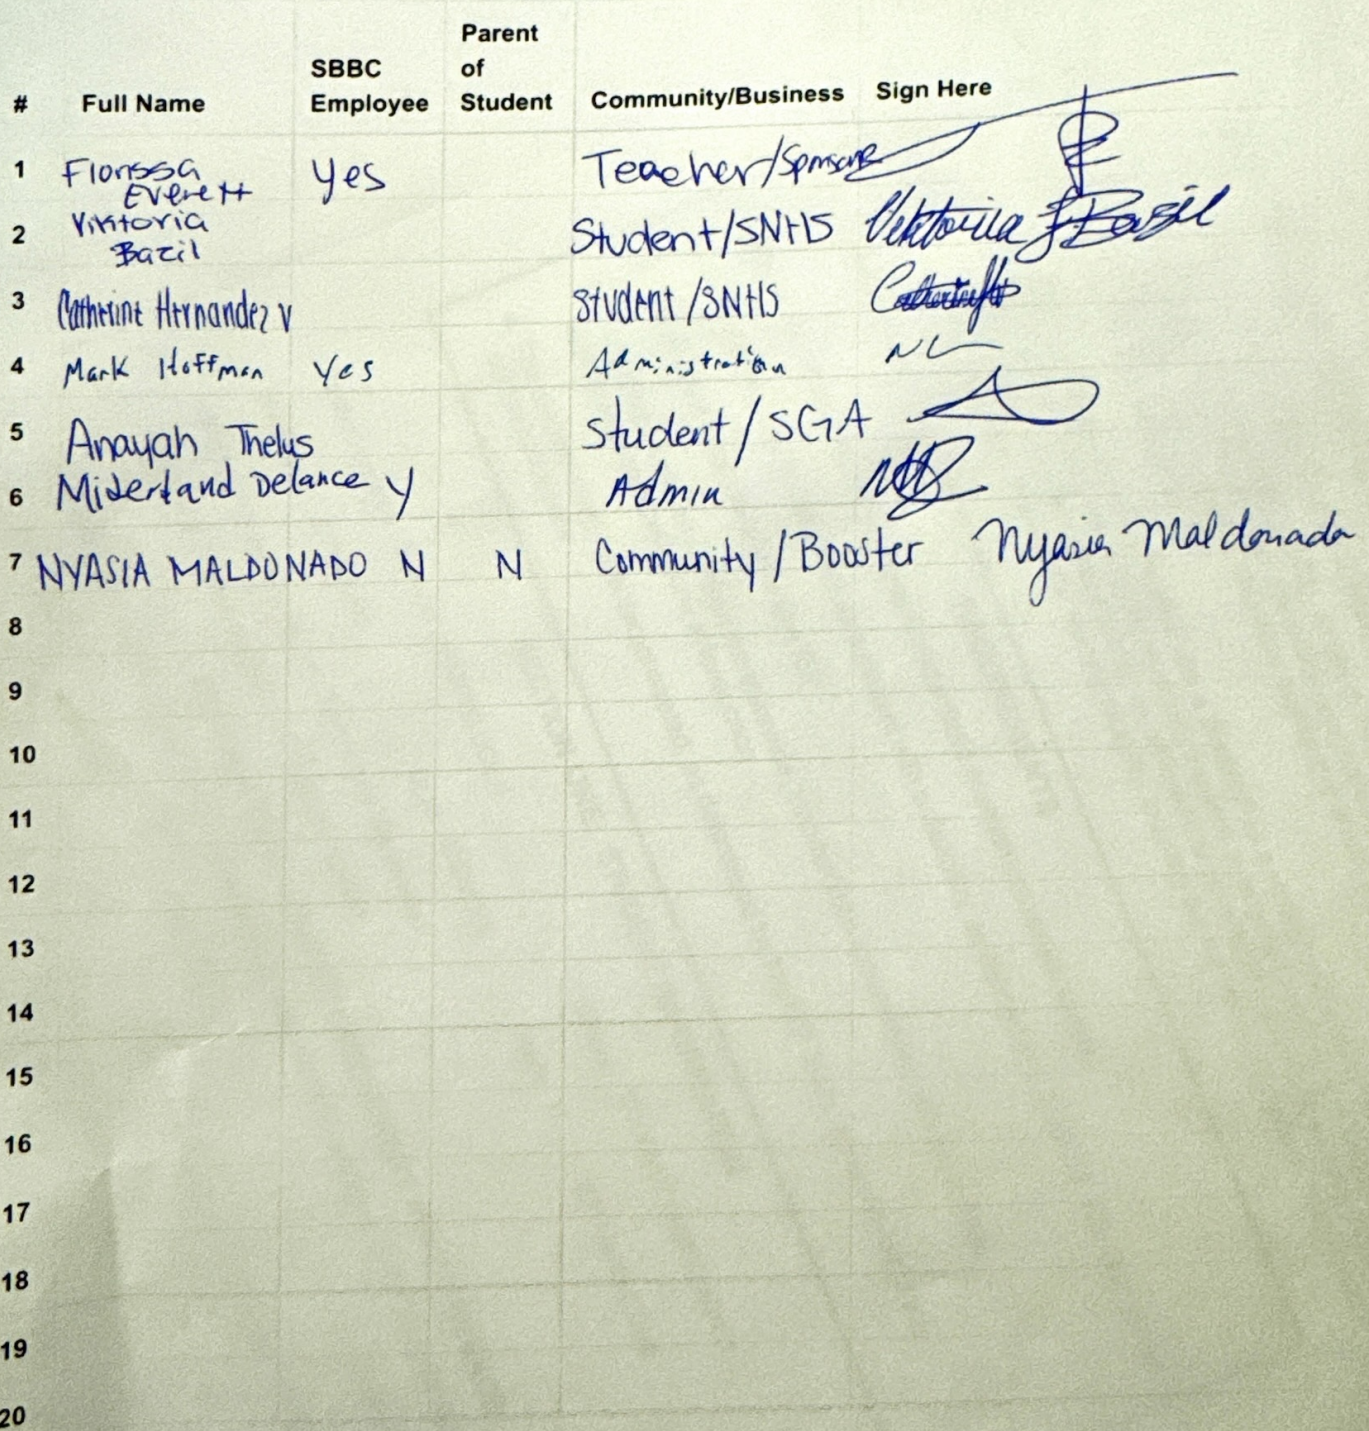 Parent
SBBC of
# Full Name Employee Student Community/Business Sign Here
1 Florissa Everett Yes Teacher/Sponsor
2 Viktoria Bazil Student/SNHS Viktoriia J Bazil
3 Catherine Hernandez V Student/SNHS
4 Mark Hoffman Yes Administration
5 Anayah Thelus Student/SGA
6 Miderland Delance Y Admin
7 NYASIA MALDONADO N N Community/Booster Nyasia Maldonado
8
9
10
11
12
13
14
15
16
17
18
19
20